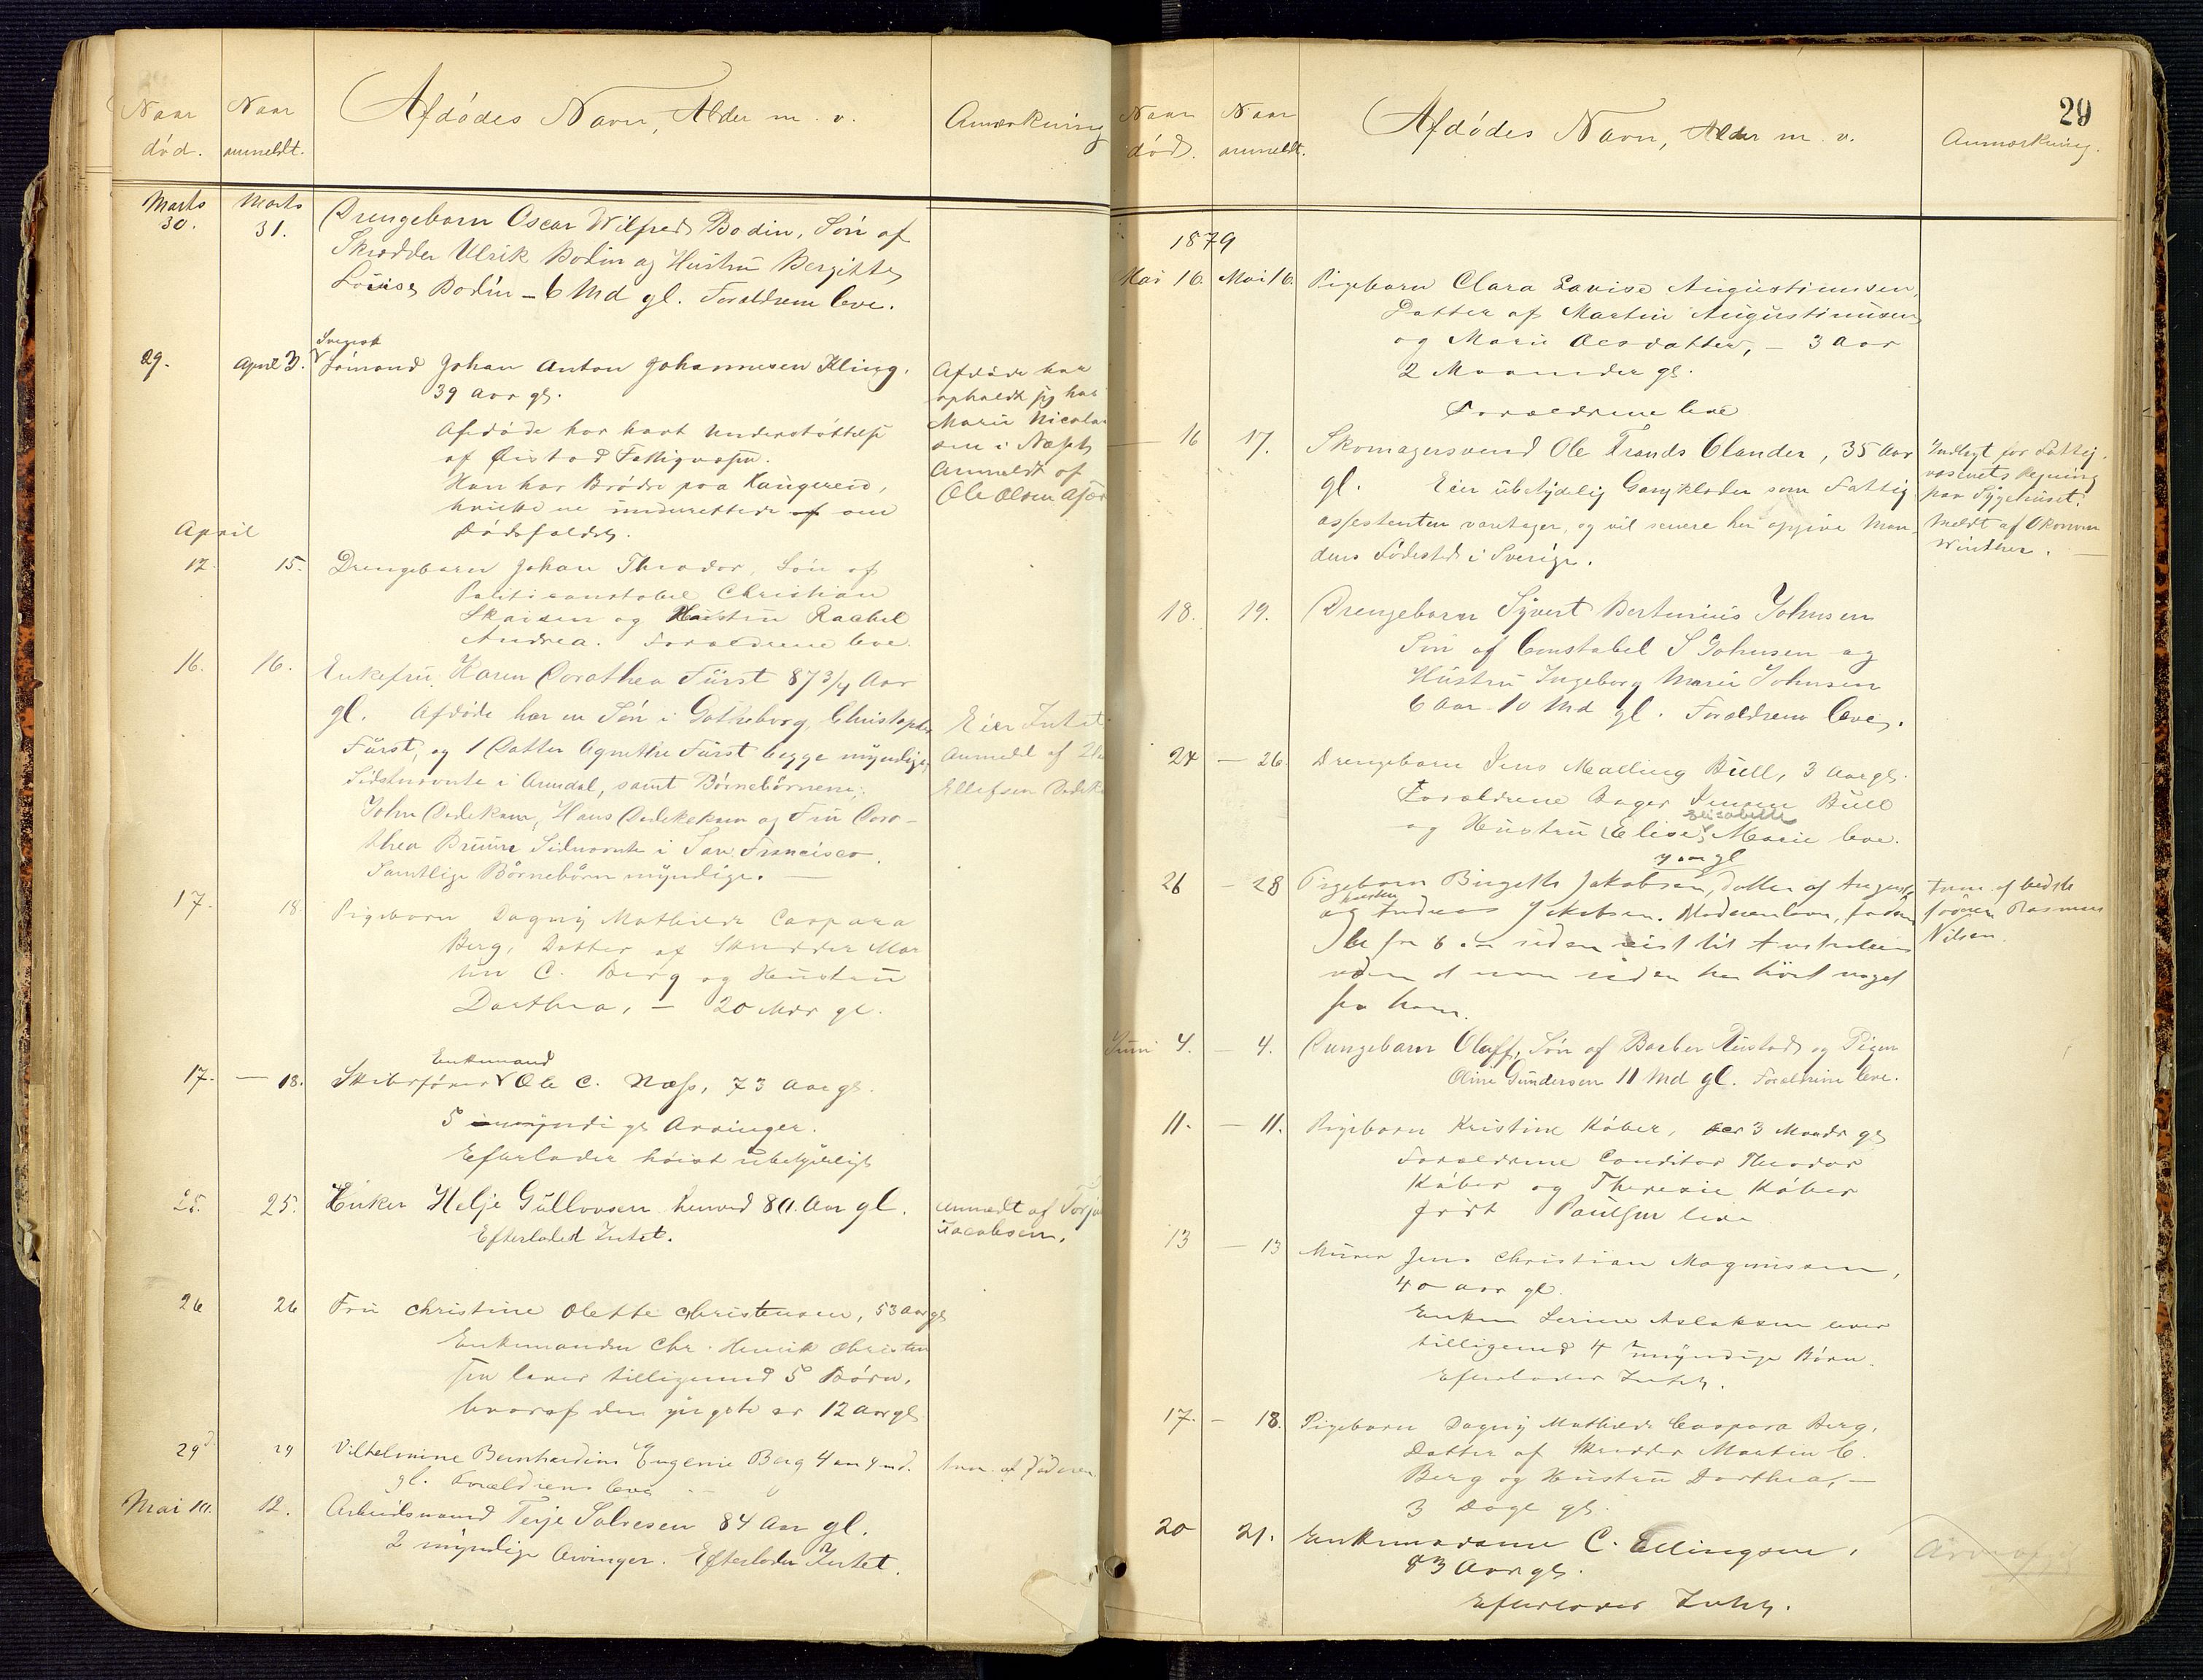 Naar død.
Naar anmeldt.
Afdödes Navn, Alder m. v.
Anmærkning
Marts 30.
Marts 31.
Drengebarn Oscar Wilfred Bodin, Sön af
Skrædder Ulrik Bodin og Hustru Bergitte
Louise Bodin – 6 Md gl. Forældrene leve.
29.
April 3.
Svensk
Sömand Johan Anton Johannesen Kling.
39 Aar gl.
Afdöde har havt Understöttelse
af Öiestad Fattigvæsen.
Han har Brödre paa
hvilke ere underrettede om
Dödsfaldet.
Afdöde har
opholdt sig hos
Marie Nicolai
sen i
Anmeldt af
Ole Olsen
April
12.
15.
Drengebarn Johan Theodor, Sön af
Politiconstabel Christian
Skaisen og Hustru Rachel
Andrea. Forældrene leve.
16.
16.
Enkefru Karen Dorothea Fürst 87 3/4 Aar
gl. Afdöde har en Sön i Gotheborg, Christopher
Fürst, og 1 Datter Agnethe Fürst begge myndige,
Sidstnævnte i Arendal, samt Börnebörnene:
John Dedekam, Hans Dedekam og Fru Doro-
thea Bruun Sidnævnte i San Francisco.
Samtlige Börnebörn myndige. –
Eier Intet
Anmeldt af
Ellefsen
17.
18.
Pigebarn Dagny Mathilde Caspara
Berg, Datter af Skrædder Mar
tin C. Berg og Hustru
Dorthea, – 20 Mdr gl.
17. –
18.
Enkemand
Skibsförer Ole C. Næss, 73 Aar gl.
5 myndige Arvinger.
Efterlader höist ubetydeligt
25.
25.
Enken Helje Gullovsen henved 80 Aar gl.
Efterladt Intet.
Anmeldt af
Jacobsen.
26
26
Fru Christine Olette Christensen, 53 Aar gl
Enkemanden Chr. Henrik Christen
sen lever tilligemed 5 Börn,
hvoraf den yngste er 12 Aar gl
29
29
Vilhelmine Bernhardine Eugenie Berg 4 aar 4 md.
gl. Forældrene leve
Anm. af Faderen
Mai 10.
12.
Arbeidsmand Terje Salvesen 84 Aar gl.
2 myndige Arvinger. Efterlader Intet.
29
Naar död.
Naar anmeldt.
Afdödes Navn, Alder m. v.
Anmærkning.
1879
Mai 16.
Mai 16.
Pigebarn Clara Lovise Augustinusen,
Datter af Martin Augustinusen
og Marie Olesdatter, – 3 Aar
2 Maaneder gl.
Forældrene leve
16
17.
Skomagersvend Ole Frands Olander, 35 Aar
gl. Eier ubetydelig Gangklæder som Fattig
assistenten varetager, og vil senere her opgive Man-
dens Födested i Sverige.
Indlagt for Fattig-
væsenets Regning
paa Sygehuset.
Meldt af Økonom
Winther. –
18.
19.
Drengebarn Syvert Bertinius Johnsen
Sön af Constabel S Johnsen og
Hustru Ingeborg Marie Johnsen
6 Aar 10 Md gl. Forældrene leve.
24
– 26
Drengebarn Jens Malling Bull, 3 Aar gl.
Forældrene Bager Jensen Bull
Elisabeth
og Hustru Elise Marie leve.
26
– 28
aar gl
Pigebarn Birgethe Jakobsen, datter af
og Andreas Jakobsen. Moderen lever, faderen
for 6 aar siden reist til Australien
uden at man siden har hört noget
fra ham.
Anm. af bedste
faderen Rasmus
Nilsen.
Juni 4.
– 4.
Drengebarn Olaff, Sön af Barber Rustad og Pigen
Oline Gundersen 11 Md gl. Forældrene leve.
11.
– 11.
Pigebarn Kristine Köber, 3 Maandr gl
Forældrene Conditor Theodor
Köber og Theresie Köber
födt Paulsen leve
13
– 13
Murer Jens Christian Magnussen,
40 aar gl.
Enken Serine Aslaksen lever
tilligemed 4 umyndige Börn.
Efterlader Intet.
17. –
18.
Pigebarn Dagny Mathilde Caspara Berg,
Datter af Skrædder Martin C.
Berg og Hustru Dorthea, –
3 Dage gl.
20
21.
Enkemadame C. Ellingsen,
83 Aar gl.
Efterlader Intet.